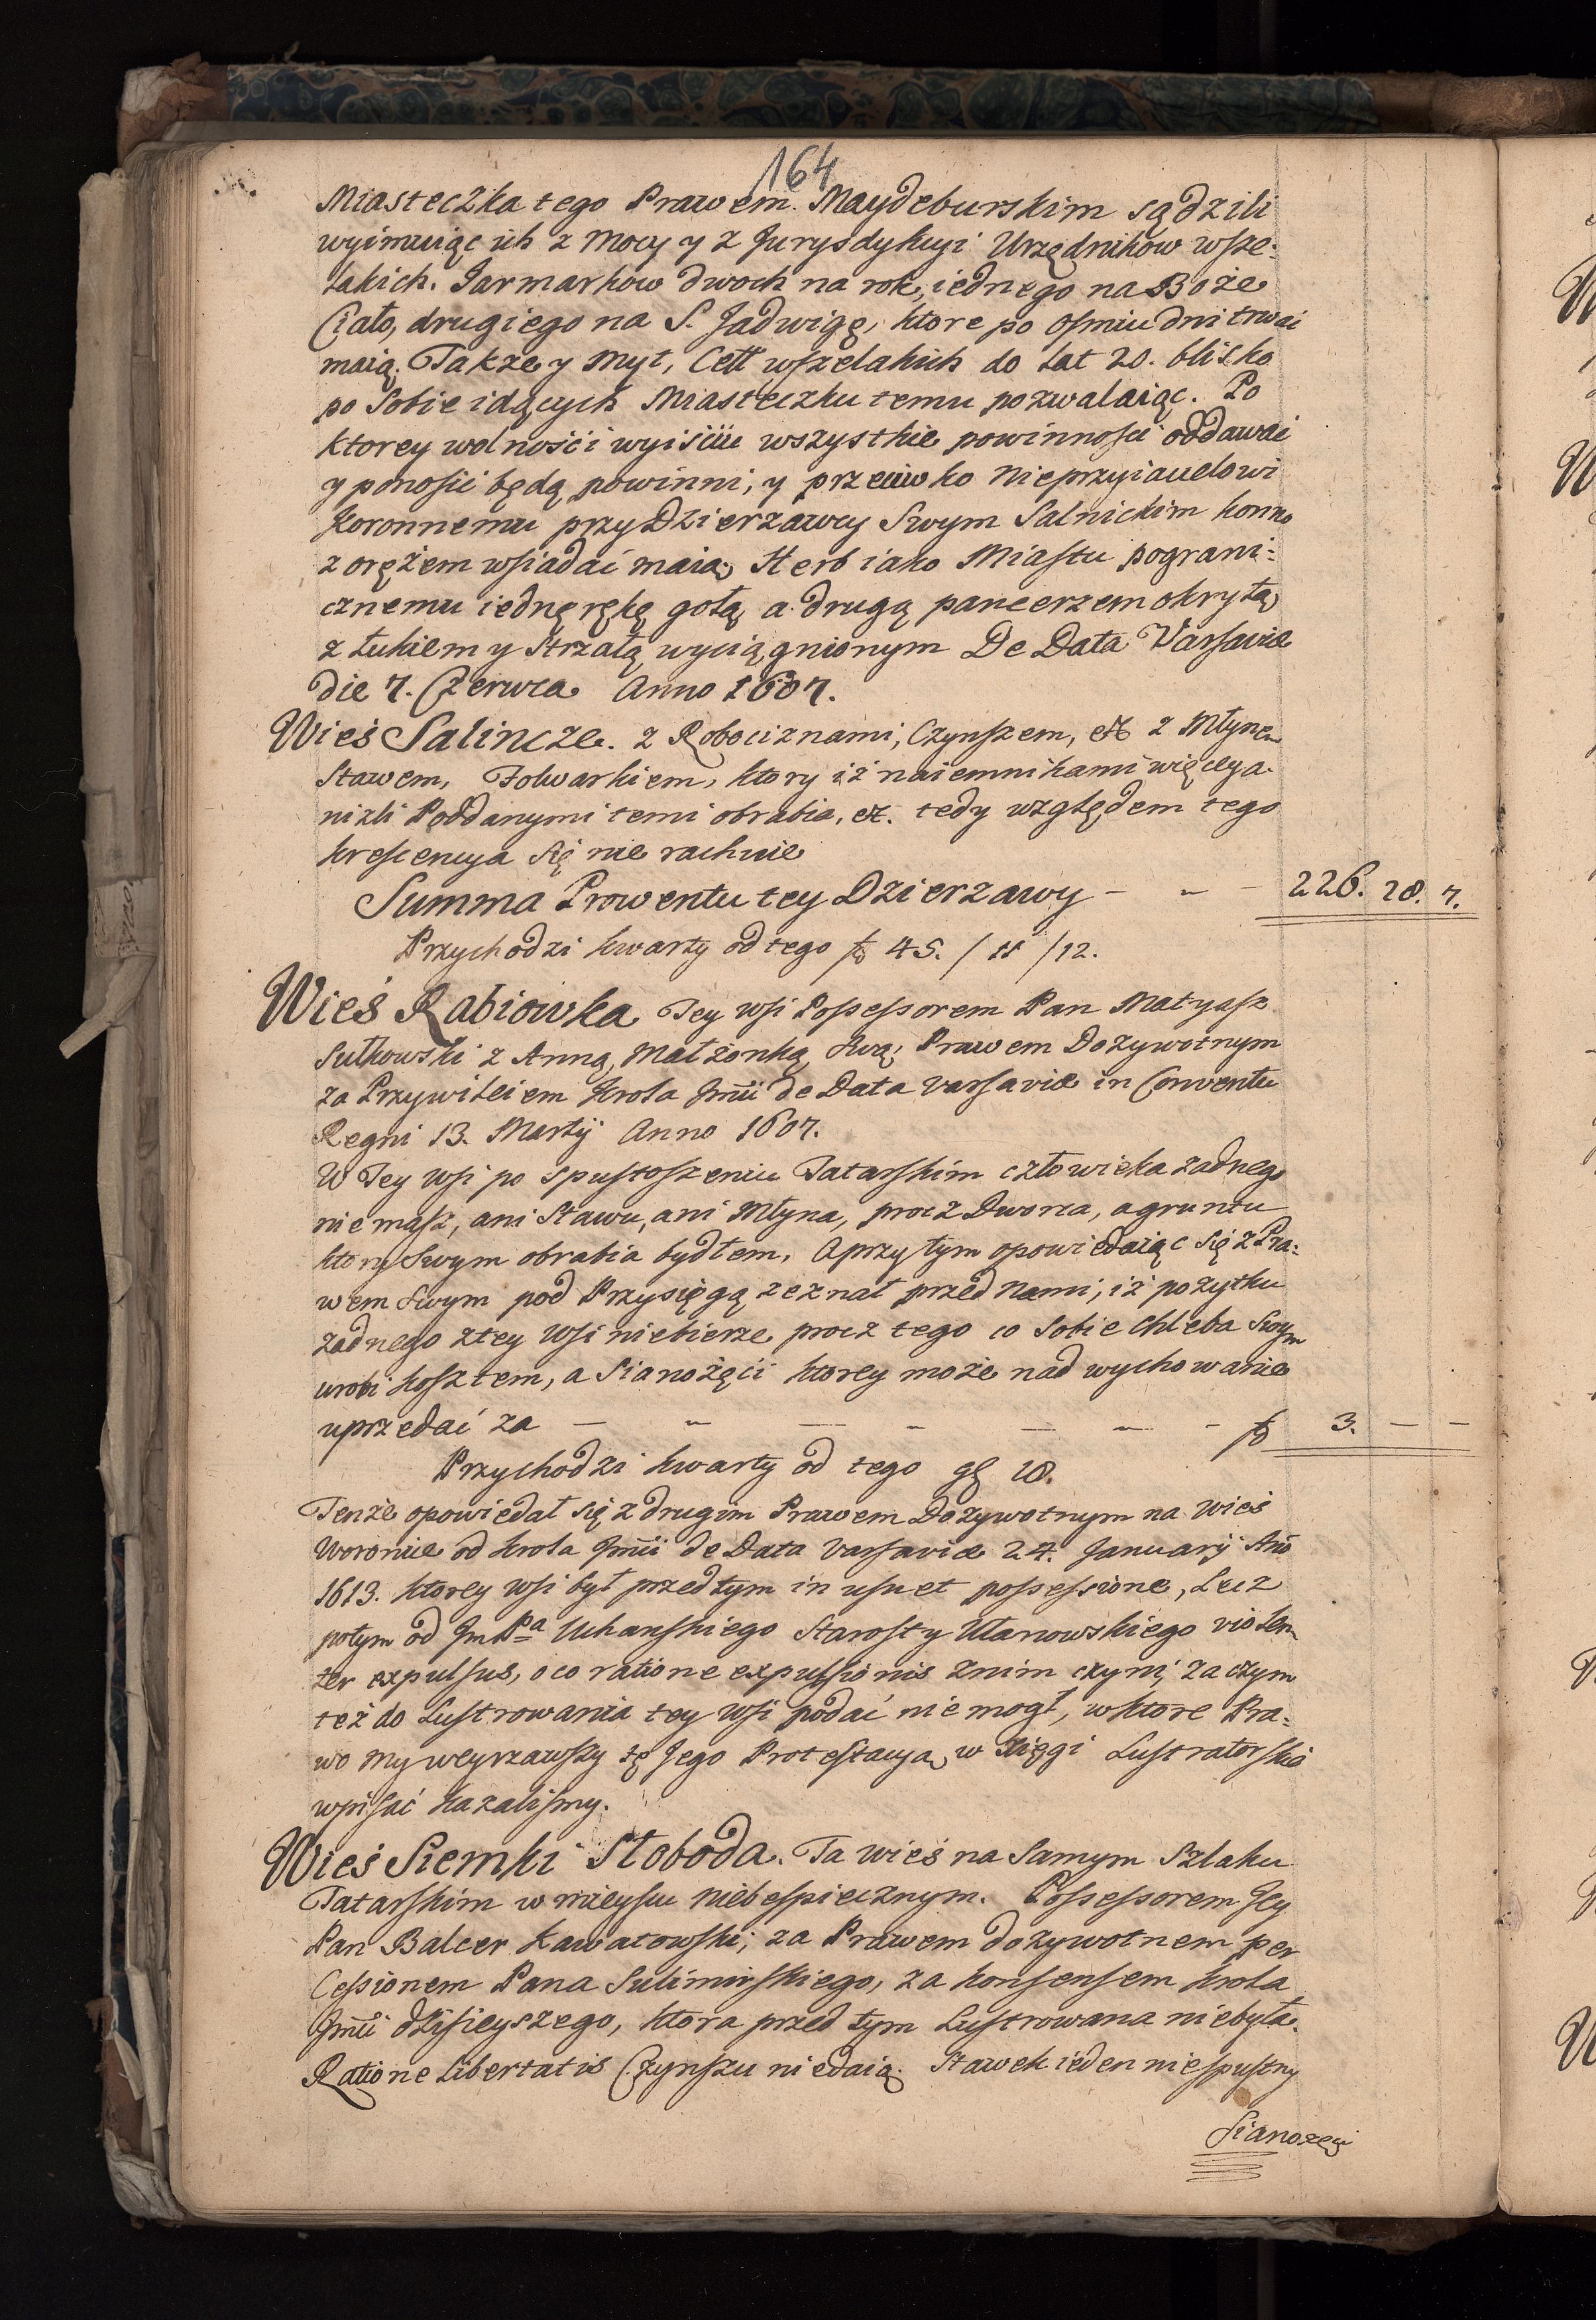 164
Miasteczka tego Prawem Maydeburskim sądzili
wyimuiąc ich z Mocy y z Jurysdykcyi Urzędnikow wsze-
lakich. Jarmarkow dwoch na rok, iednego na Boże
Ciało, drugiego na S. Jadwigę, ktore po osmiu dni trwać
maią. Takze y Myt, Cełł wszelakich do lat 20. blisko
po sobie idących Miasteczku temu pozwalaiąc. Po
ktorey wolności wyiściu wszystkie powinności oddawać
y ponosić będą powinni, y przeciwko Nieprzyiacielowi
Koronnemu przy Dzierzawcy Swym Salnickim konno
z orężem wsiadać maią, Herb iako Miastu pograni-
cznemu iednę rękę gołą a drugą pancerzem okrytą
z Łukiem y Strzałą wyciągnionym De Data Varsaviæ
die 7. Czerwca Anno 1607.
Wieś Salincze. z Robociznami, Czynszem, etc z Młynem
Stawem, Folwarkiem, ktory iż naiemnikami więcey a-
nizli Poddanymi temi obrabia, etc. tedy względem tego
krescencya się nie rachuie
Summa Prowentu tey Dzierzawy - - - 226. 28. 7.
Przychodzi kwarty od tego fl 45. / 11 / 12.
Wieś Rabiowka Tey wsi Possessorem Pan Matyasz
Sułkowski z Anną Małżonką swą, Prawem Dożywotnym
za Przywileiem Krola Jmći de Data Varsaviæ in Conventu
Regni 13. Martij Anno 1607.
W Tey wsi po spustoszeniu Tatarskim człowieka zadnego
nie masz, ani Stawu, ani Młyna, procz Dworca, a gruntu
ktory Swym obrabia bydłem, a przytym opowiedaiąc się z Pra-
wem swym pod Przysięgą zeznał przed Nami, iż pożytku
zadnego z tey Wsi niebierze procz tego co sobie chleba swym
urobi kosztem, a Sianożęci ktorey może nad wychowanie
uprzedać za - - - - - - - fl 3. - -
Przychodzi kwarty od tego gł 18.
Tenże opowiedał się z drugim Prawem Dożywotnym na Wieś
Woronie od Krola Jmći de Data Varsaviæ 24. January Ao
1613. ktorey wsi był przed tym in usu et possessione, Lecz
potym od Jm Pa Uchanskiego Starosty Ułanowskiego violen-
ter expulsus, o co ratione expulsionis z nim czyni, za czym
też do Lustrowania tey Wsi podać nie mogł, w ktore Pra-
wo my weyrzawszy tę Jego Protestacyą w Xięgi Lustratorskie
wpisać kazalismy.
Wieś Siemki Słoboda. Ta wieś na samym Szlaku
Tatarskim w mieyscu niebespiecznym. Possessorem Jey
Pan Balcer Kawatowski, za Prawem dożywotnem per
Cessionem Pana Sulimirskiego, za konsensem Krola
Jmći dzisieyszego, ktora przed tym Lustrowana niebyła.
Ratione Libertatis Czynszu niedaią. Stawek ieden niespustny
Sianożęci